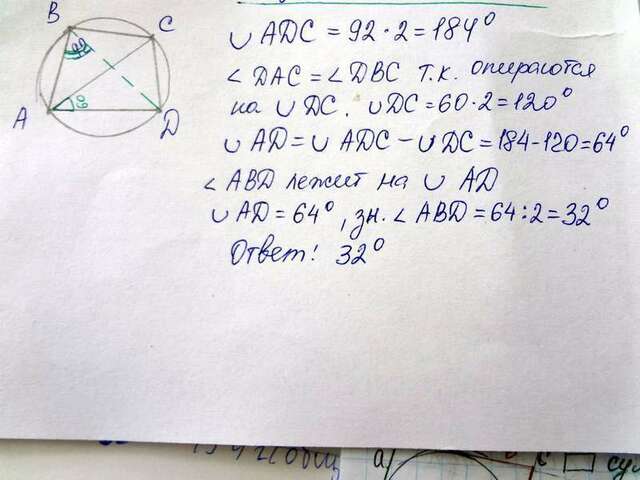 B
C
A
D
60
∪ ADC = 92 · 2 = 184°
∠ DAC = ∠ DBC т.к. опираются
на ∪ DC. ∪ DC = 60 · 2 = 120°
∪ AD = ∪ ADC – ∪ DC = 184 - 120 = 64°
∠ ABD лежит на ∪ AD
∪ AD = 64°, зн. ∠ ABD = 64 : 2 = 32°
Ответ! 32°
а)